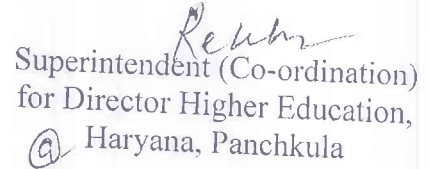 Superintendent (Co-ordination)
for Director Higher Education,
Haryana, Panchkula